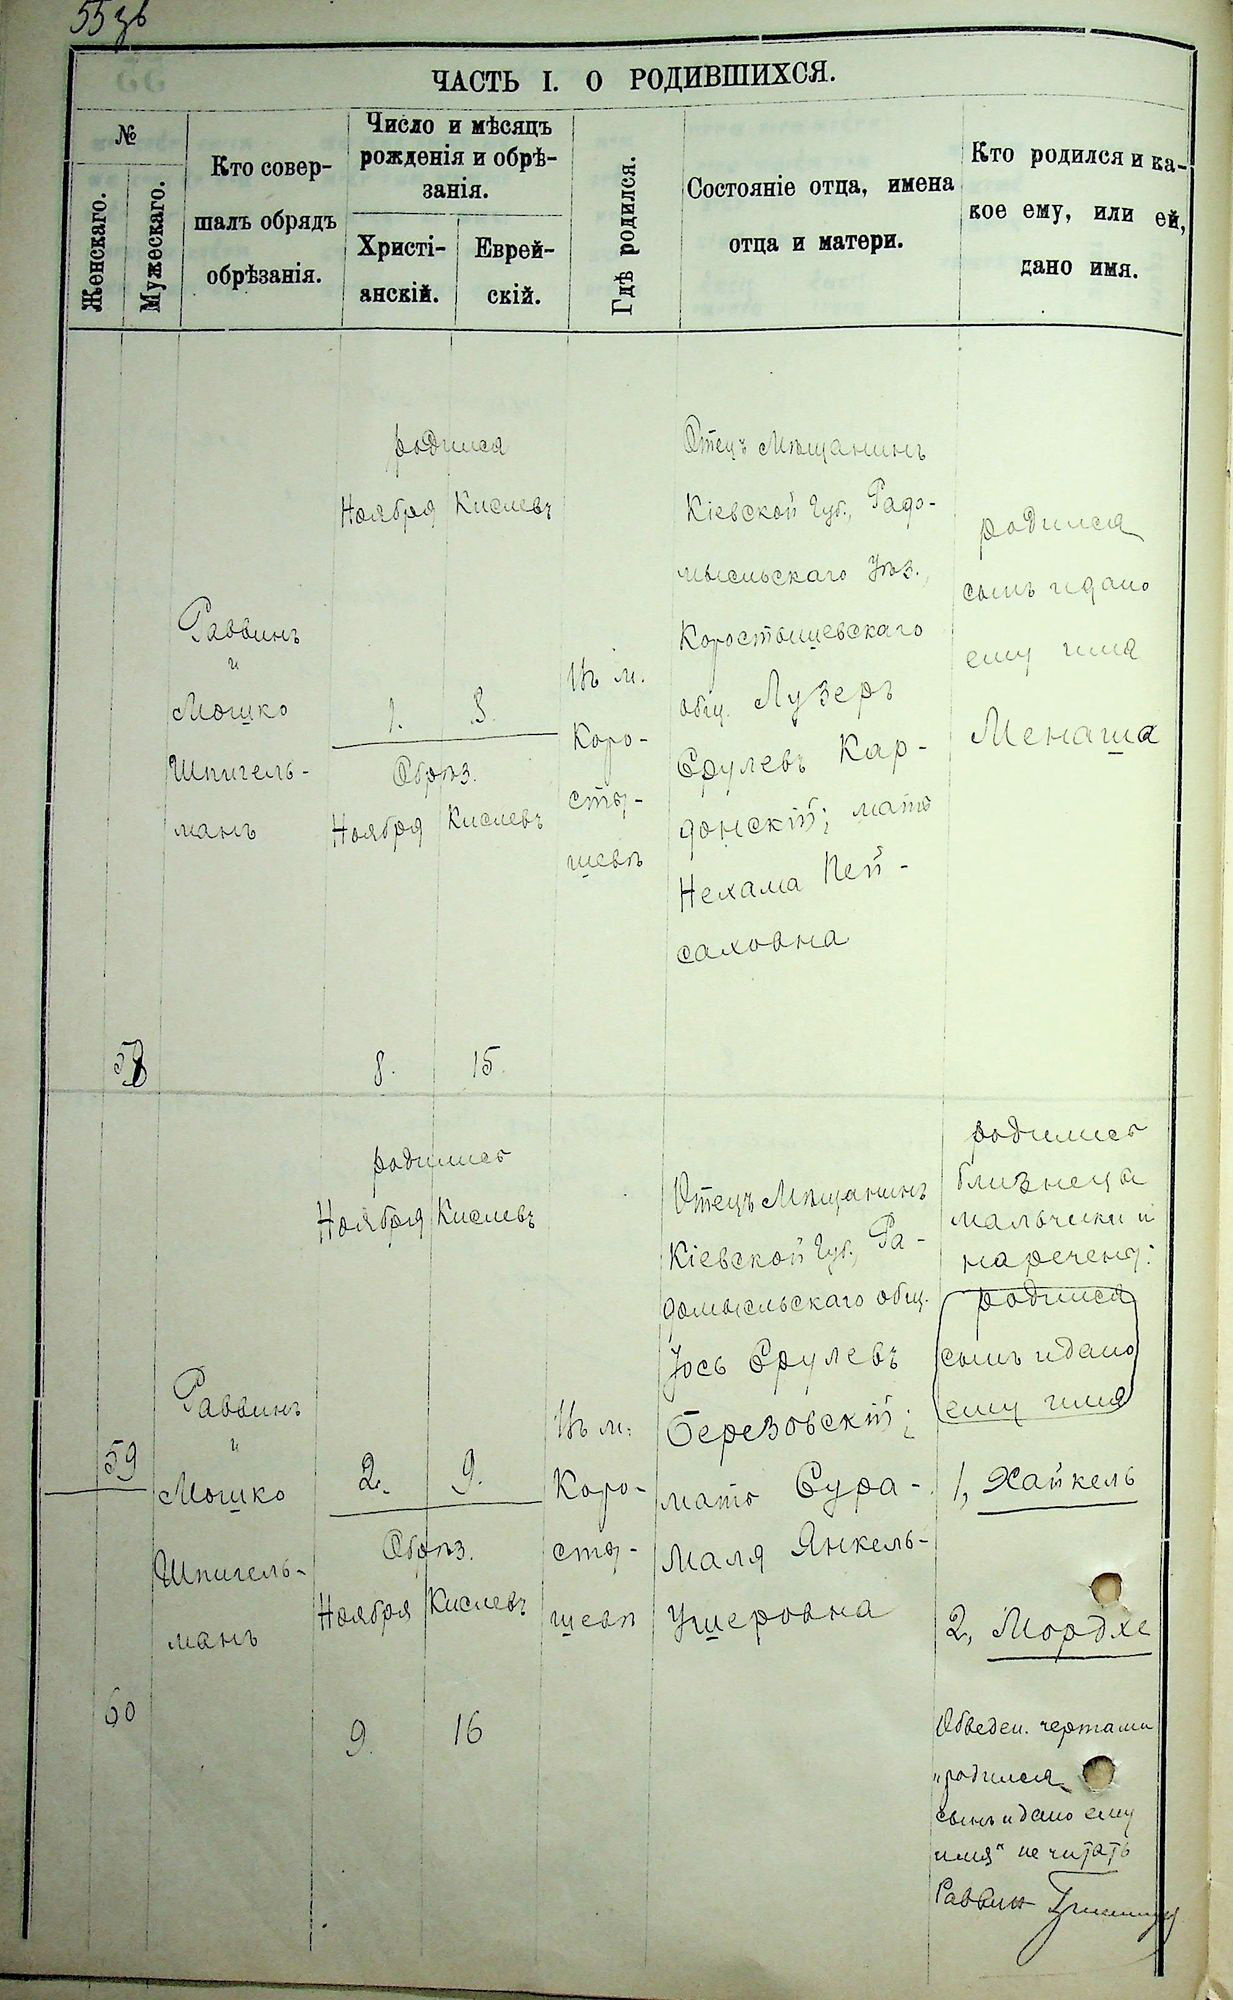 55 зв
ЧАСТЬ I. О РОДИВШИХСЯ.
№
Женскаго.
Мужескаго.
Кто совер-
шалъ обрядъ
обрѣзанія.
Число и мѣсяцъ
рожденія и обрѣ-
занія.
Христі-
анскій.
Еврей-
скій.
Гдѣ родился.
Состояніе отца, имена
отца и матери.
Кто родился и ка-
кое ему, или ей,
дано имя.
58
Раввинъ
и
Мошко
Шпигель-
манъ
родился
Ноября Кислевъ
1. 8.
Обрѣз.
Ноября Кислевъ
8. 15.
Въ м.
Коро-
сты-
шевѣ
Отецъ Мѣщанинъ
Кіевской Губ., Радо-
мысльскаго Уѣз.,
Коростышевскаго
общ. Лузеръ
Срулевъ Кар-
донскій; мать
Нехама Пей-
саховна
родился
сынъ и дано
ему имя
Менаша
59
60
Раввинъ
и
Мошко
Шпигель-
манъ
родились
Ноября Кислевъ
2. 9.
Обрѣз.
Ноября Кислевъ
9. 16
Въ м.
Коро-
сты-
шевѣ
Отецъ Мѣщанинъ
Кіевской Губ., Ра-
домысльскаго общ.
Іось Срулевъ
Березовскій;
мать Сура-
Маля Янкель-
Ушеровна
родились
близнецы
мальчики и
наречены:
родился
сынъ и дано
ему имя
1, Хайкель
2, Мордхе
Обведен. чертами
„родился
сынъ и дано ему
имя“ не читать
Раввин